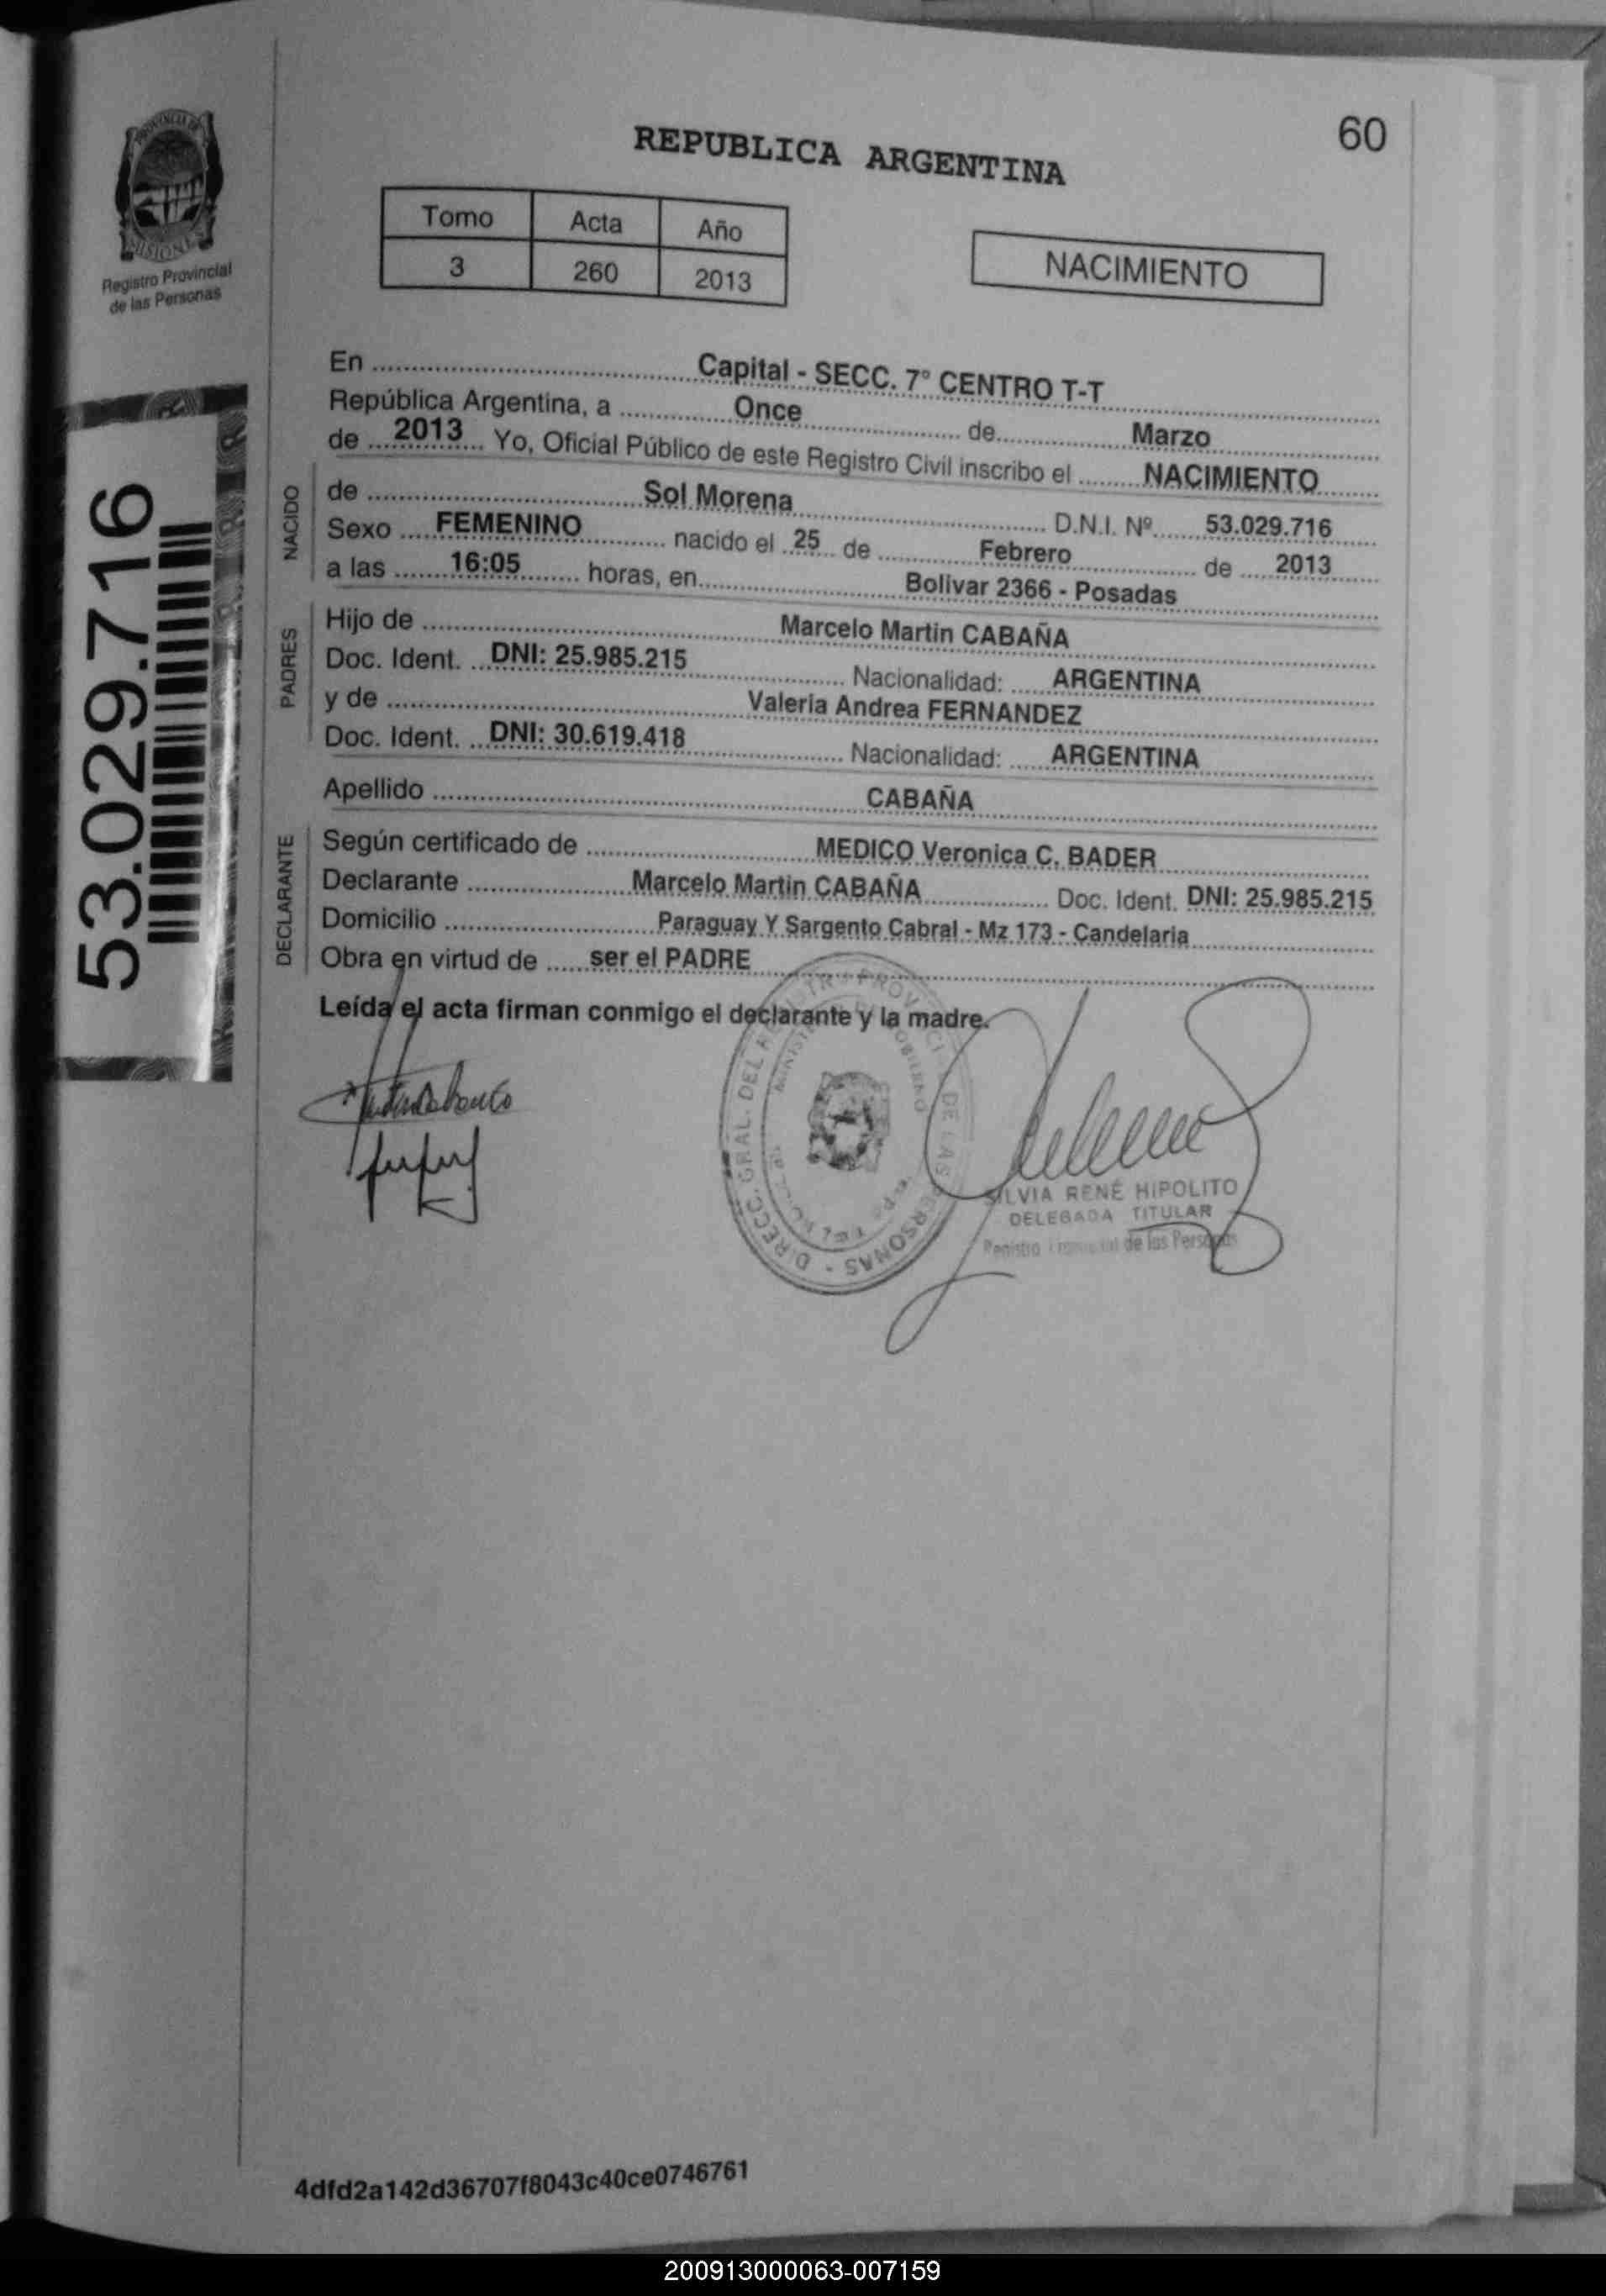 60
REPUBLICA ARGENTINA
PROVINCIA DE
MISIONES
Registro Provincial
de las Personas
Tomo Acta Año
3 260 2013
NACIMIENTO
53.029.716
En Capital - SECC. 7° CENTRO T-T
República Argentina, a Once de Marzo
de 2013 Yo, Oficial Público de este Registro Civil inscribo el NACIMIENTO
NACIDO
de Sol Morena D.N.I. Nº 53.029.716
Sexo FEMENINO nacido el 25 de Febrero de 2013
a las 16:05 horas, en Bolivar 2366 - Posadas
PADRES
Hijo de Marcelo Martin CABAÑA
Doc. Ident. DNI: 25.985.215 Nacionalidad: ARGENTINA
y de Valeria Andrea FERNANDEZ
Doc. Ident. DNI: 30.619.418 Nacionalidad: ARGENTINA
Apellido CABAÑA
DECLARANTE
Según certificado de MEDICO Veronica C. BADER
Declarante Marcelo Martin CABAÑA Doc. Ident. DNI: 25.985.215
Domicilio Paraguay Y Sargento Cabral - Mz 173 - Candelaria
Obra en virtud de ser el PADRE
Leída el acta firman conmigo el declarante y la madre.
DIRECC. GRAL. DEL REGISTRO PROVINCIAL DE LAS PERSONAS
SILVIA RENÉ HIPOLITO
DELEGADA TITULAR
Registro Provincial de las Personas
4dfd2a142d36707f8043c40ce0746761
200913000063-007159